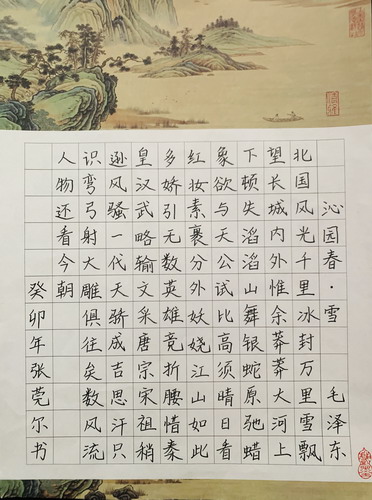 沁园春·雪 毛泽东
北国风光千里冰封万里雪飘
望长城内外惟余莽莽大河上
下顿失滔滔山舞银蛇原驰蜡
象欲与天公试比高须晴日看
红妆素裹分外妖娆江山如此
多娇引无数英雄竞折腰惜秦
皇汉武略输文采唐宗宋祖稍
逊风骚一代天骄成吉思汗只
识弯弓射大雕俱往矣数风流
人物还看今朝
癸卯年张莞尔书